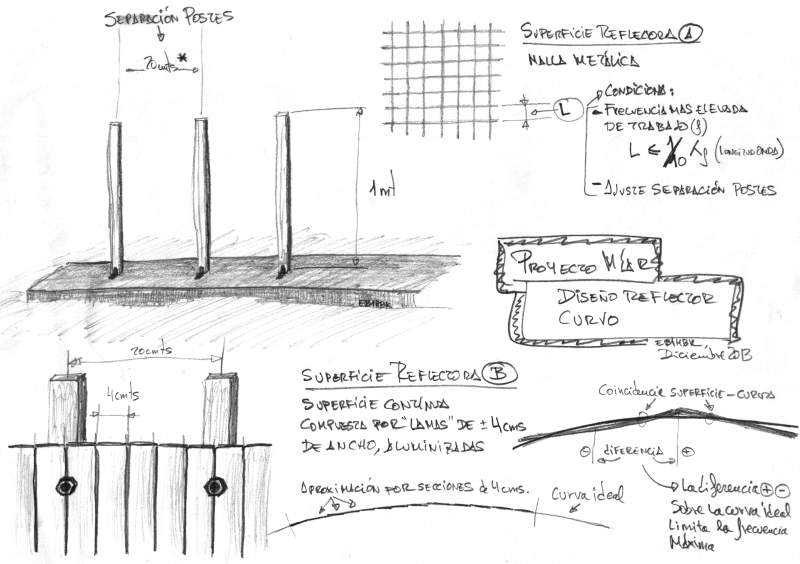 SEPARACIÓN POSTES
20cmts*
1mt
EB1HBK
SUPERFICIE REFLECTORA A
MALLA METÁLICA
L
CONDICIONA:
- FRECUENCIA MAS ELEVADA
DE TRABAJO (f)
L ≤ 1/10 λf (LONGITUD ONDA)
- AJUSTE SEPARACIÓN POSTES
PROYECTO
DISEÑO REFLECTOR
CURVO
EB1HBK,
Diciembre 2013
20cmts
4cmts
SUPERFICIE REFLECTORA B
SUPERFICIE CONTINUA
COMPUESTA POR "LAMAS" DE ± 4cms
DE ANCHO, ALUMINIZADAS
APROXIMACIÓN POR SECCIONES de 4cms.
Curva ideal
Coincidencia SUPERFICIE-CURVA
⊖ DIFERENCIA ⊕
La diferencia ⊕ ⊖
Sobre la curva ideal
Limita la frecuencia
Máxima